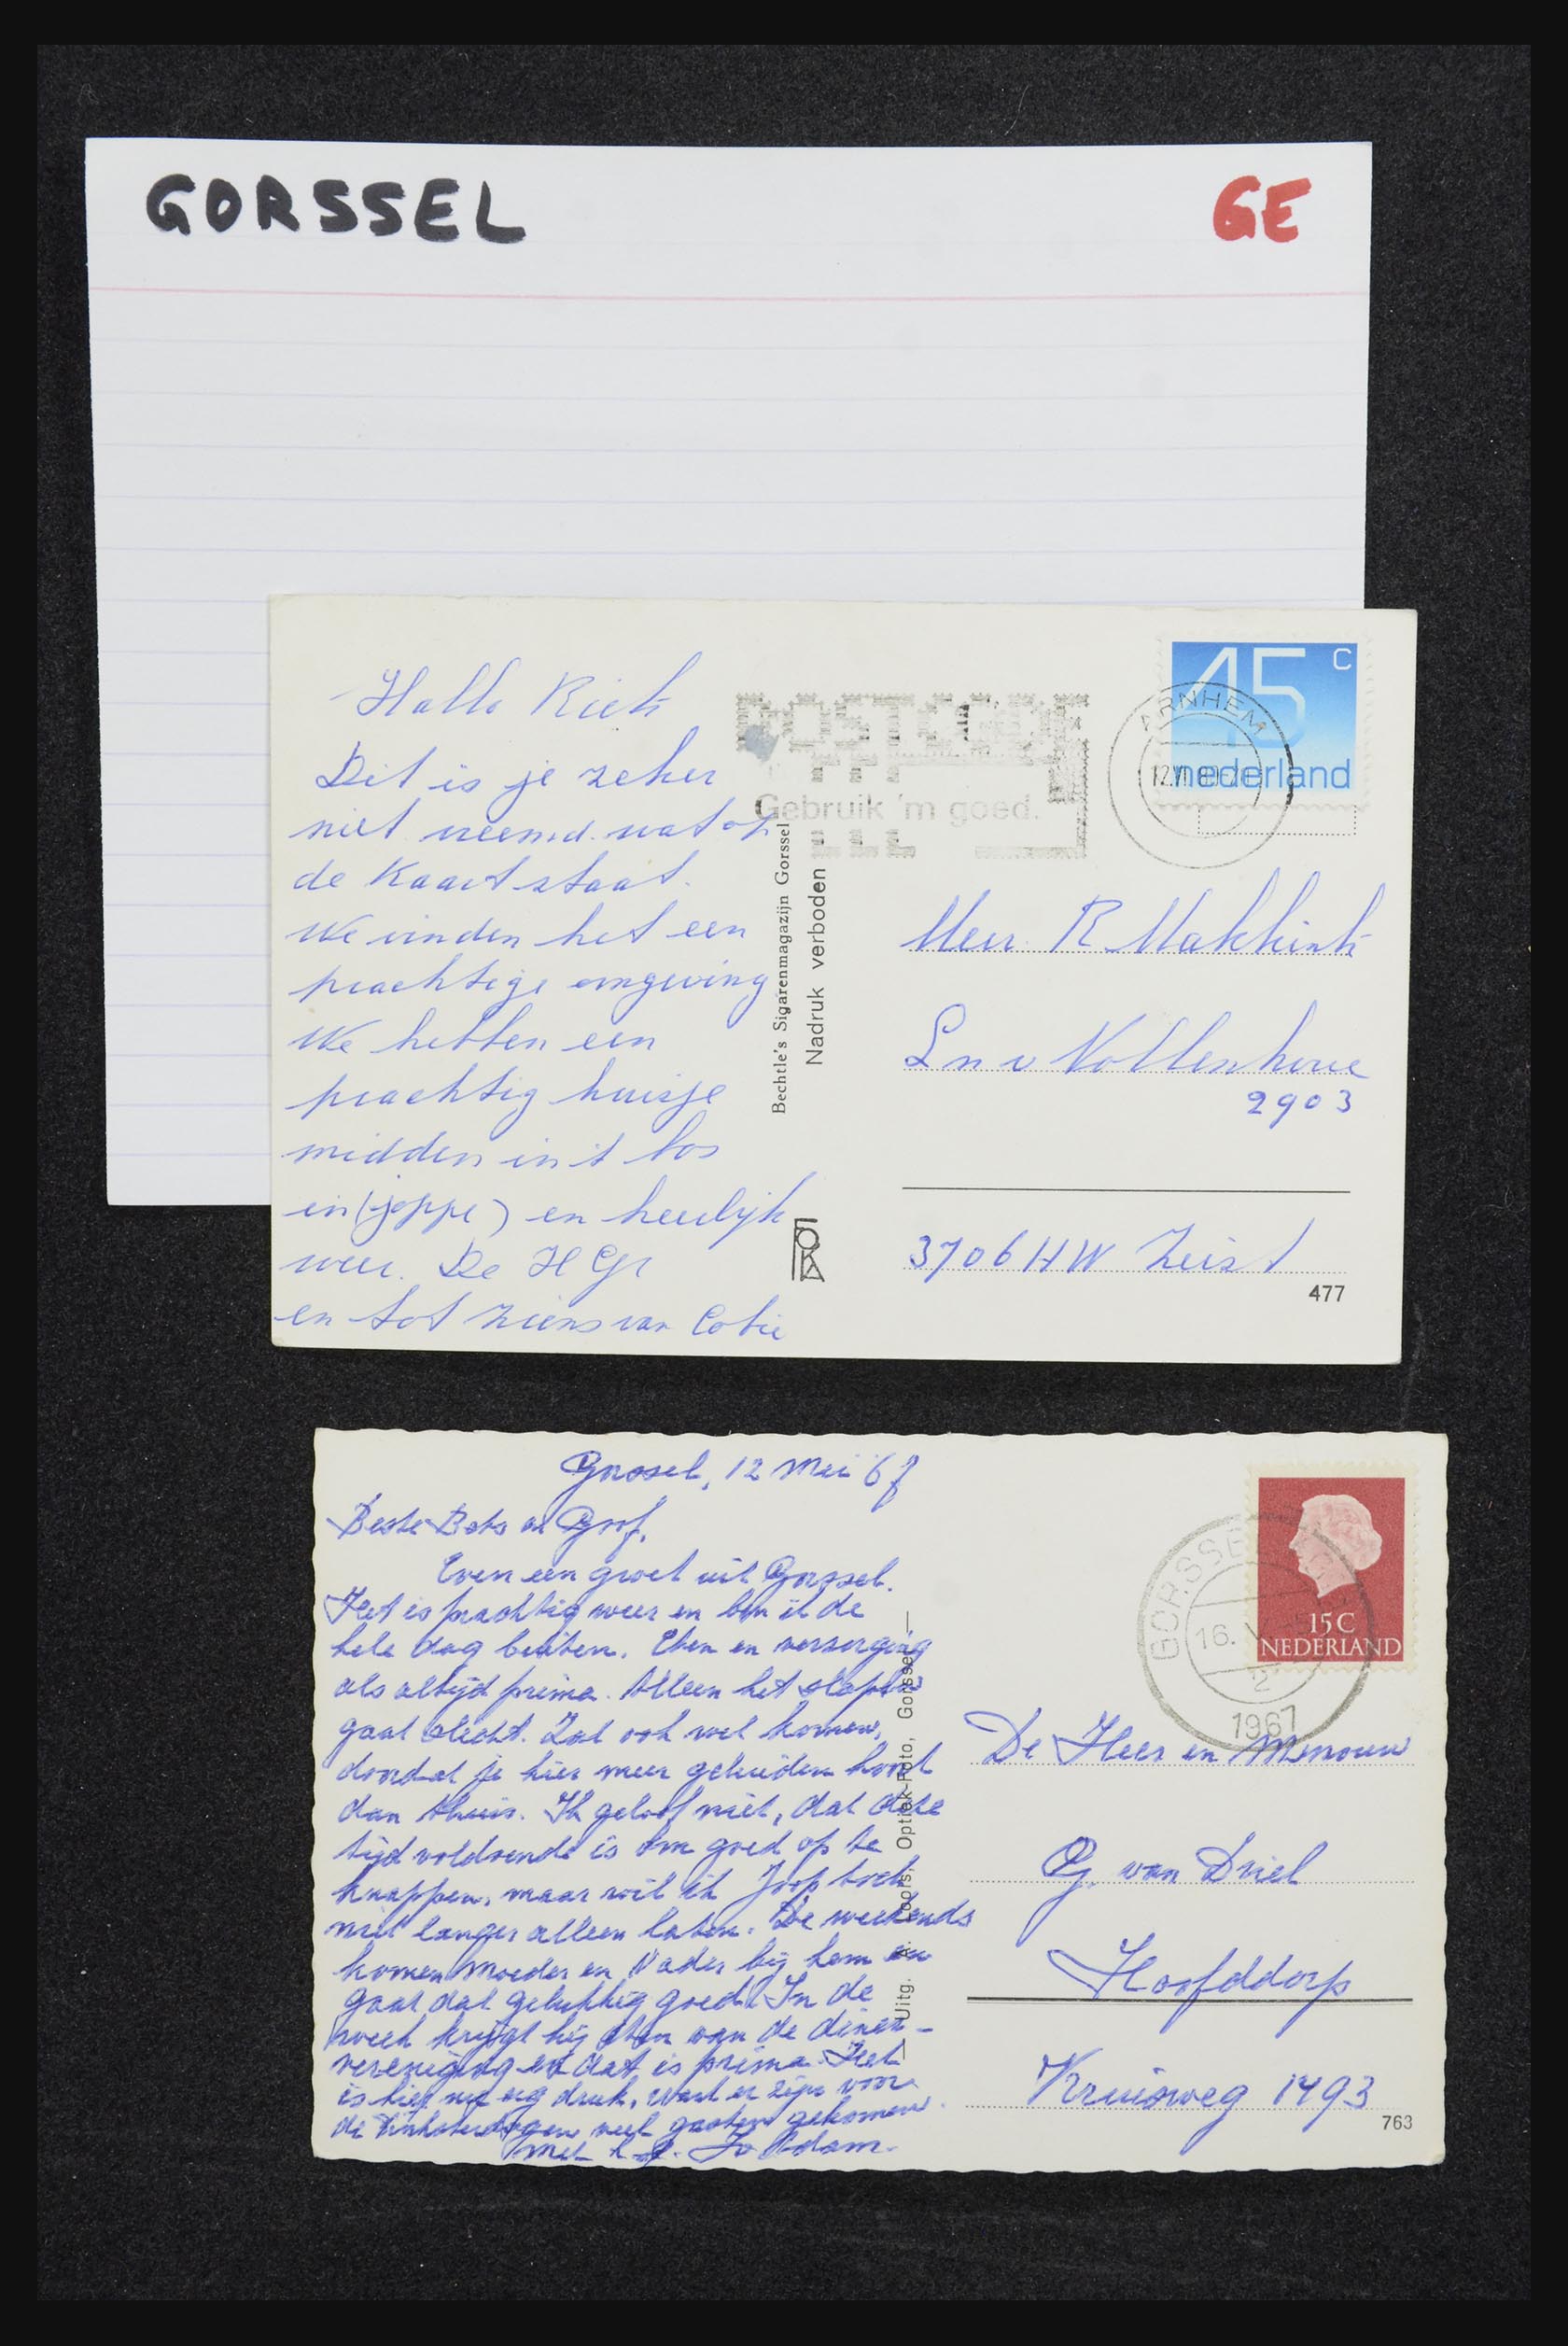 GORSSEL GE
Hallo Riek
Dit is je zeker
niet vreemd wat op
de Kaart staat.
We vinden het een
prachtige omgeving
We hebben een
prachtig huisje
midden in 't bos
in (joppe) en heerlijk
weer. De H Gr
en tot ziens van Cobie
POSTCODE
Gebruik 'm goed.
Bechtle's Sigarenmagazijn Gorssel
Nadruk verboden
45 c
nederland
ARNHEM
Mevr. R Makkink
Ln v Vollenhove
2903
3706 HW Zeist
477
Gorssel, 12 Mei '67
Beste Bets en
Even een groet uit Gorssel.
Het is prachtig weer en ben ik de
hele dag buiten. Eten en verzorging
als altijd prima. Alleen het slapen
gaat slecht. Zal ook wel komen,
doordat je hier meer geluiden hoort
dan thuis. Ik geloof niet, dat deze
tijd voldoende is om goed op te
knappen, maar wil ik Joop toch
niet langer alleen laten. De weekends
komen Moeder en Vader bij hem en
gaat dat gelukkig goed. In de
week krijgt hij eten van de diner-
vereniging en dat is prima. Het
is hier nu erg druk, want er zijn voor
de Pinksterdagen veel gasten gekomen.
Met h.g. Jo Adam.
Uitg. A. Loors, Optiek-Foto, Gorssel
15 C
NEDERLAND
GORSSEL
16.
2
1967
De Heer en Mevrouw
G. van Driel
Hoofddorp
Kruisweg 1493
763